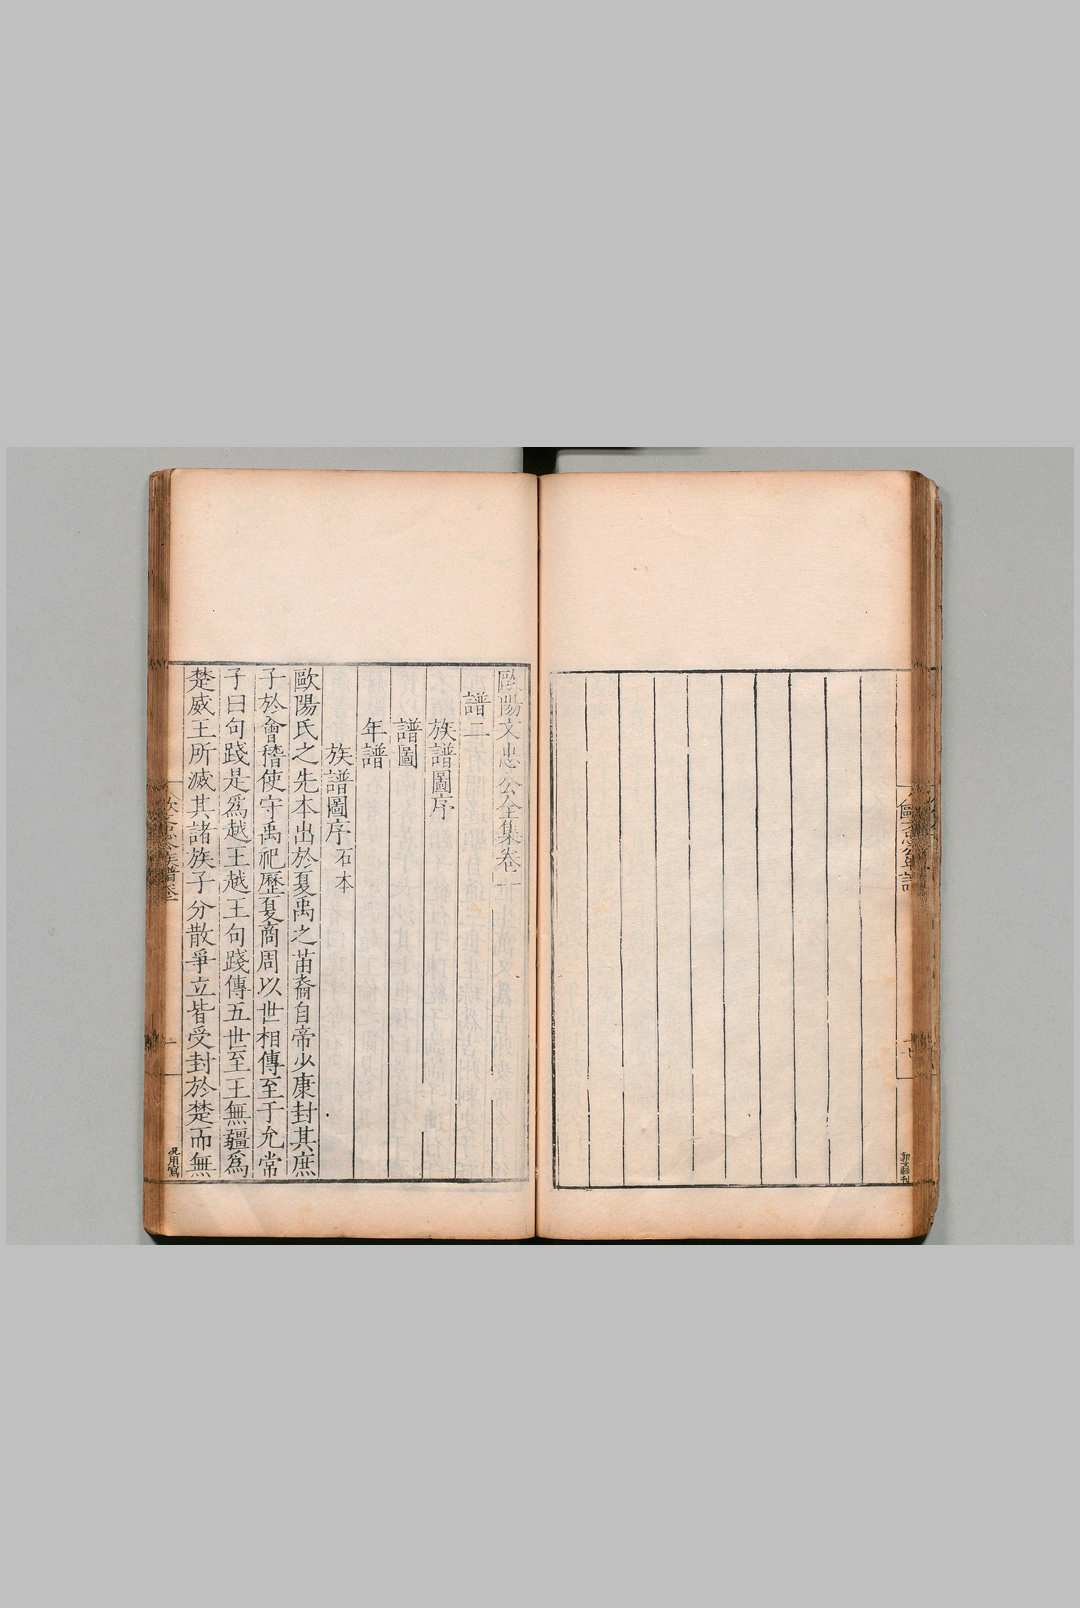 歐陽文忠公全集卷一
譜二
族譜圖序
譜圖
年譜
族譜圖序石本
歐陽氏之先本出於夏禹之苗裔自帝少康封其庶
子於會稽使守禹祀歷夏商周以世相傳至于允常
子曰句踐是爲越王越王句踐傳五世至王無疆爲
楚威王所滅其諸族子分散爭立皆受封於楚而無